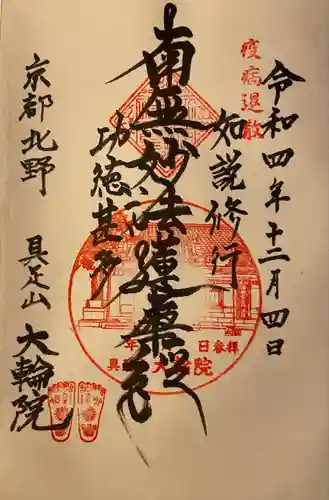 疫病退散
令和四年十二月四日
如説修行
南無妙法蓮華経
功徳甚多
京都北野
具足山
大輪院